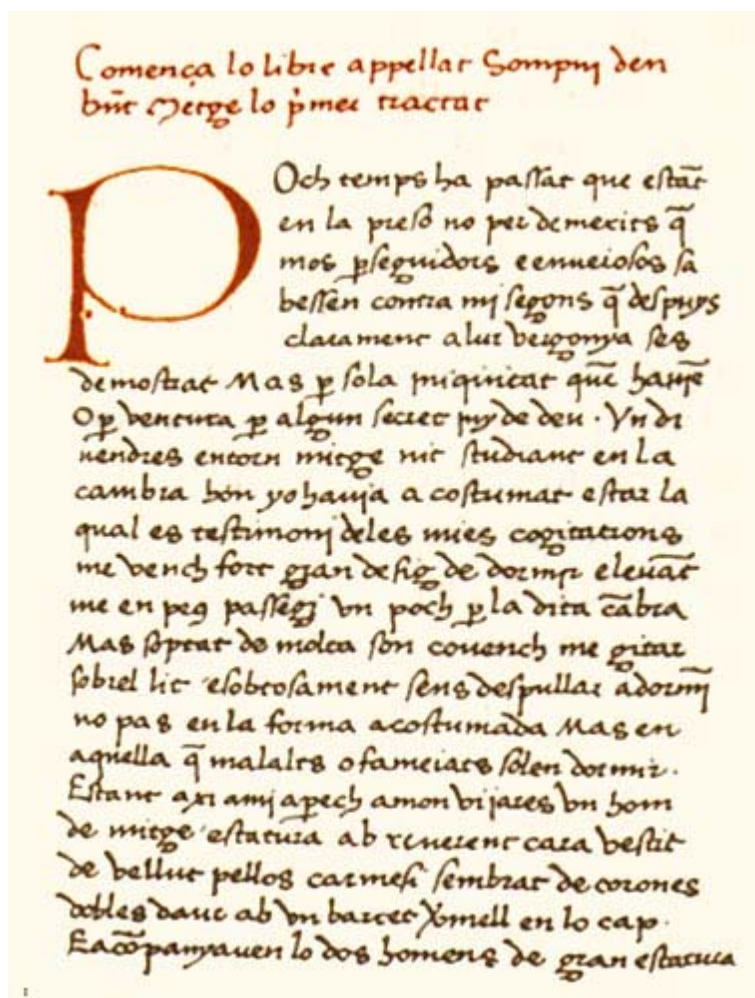 Comença lo libre appellat Sompni den
bñt Metge lo p̃mer tractat
POch temps ha passat que estãt
en la presõ no per demerits q̃
mos ꝑseguidors e enueiosos sa
bessen contra mi segons q̃ despuys
clarament a lur vergonya ses
demostrat Mas ꝑ sola iniquitat que hauiẽ
O ꝑ ventura ꝑ algun secret juy de deu · Vn di
uendres entorn mitge nit studiant en la
cambra hon yo hauia acostumat estar la
qual es testimonj deles mies cogitacions
me vench fort gran desig de dormir e leuãt
me en peus passegj vn poch ꝑ la dita cãbra
Mas soptat de molta son couench me gitar
sobrel lit e sobtosament sens despullar adormj̃
no pas en la forma acostumada Mas en
aquella q̃ malalts o fameiats solen dormir ·
Estant axi ami aparech amon vijares vn hom
de mitge estatura ab reuerent cara vestit
de vellut pellos carmesi sembrat de corones
dobles daur ab vn barret vermell en lo cap ·
E acõpanyauen lo dos homens de gran estatura